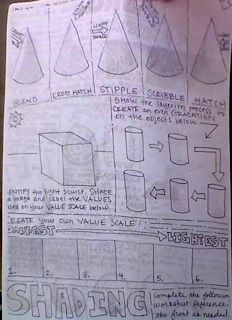 LIGHT
BLEND
CROSS HATCH
STIPPLE
SCRIBBLE
HATCH
SHOW the layering process to
CREATE an even GRADATION
on the objects below
the light source, SHADE
and label the VALUES
on your VALUE SCALE.
CREATE your own VALUE SCALE!
DARKEST
LIGHTEST
1.
2.
3.
4.
5.
6.
SHADING
Complete the following
worksheet. Reference
the front as needed.